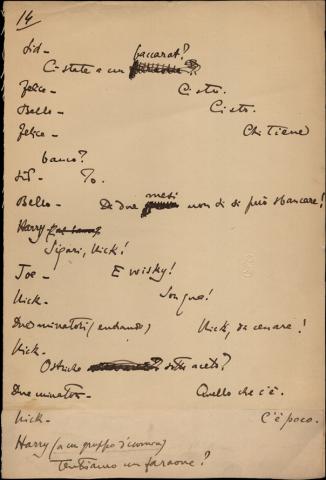 14
Sid -
baccarat?
Ci state a un
Felice -
Ci sto.
Bello -
Ci sto.
Felice -
Chi tiene
banco?
Sid -
Io.
Bello -
Da due mesi non di si può sbancare!
Harry
Sigari, Nick!
Joe -
E wisky!
Nick -
Son qua!
Due minatori (entrando)
Nick, da cenare!
Nick -
Ostriche sotto aceto?
Due minatori -
Quello che c'è.
Nick -
C'è poco.
Harry (a un gruppo d'uomini)
Tentiamo un faraone?